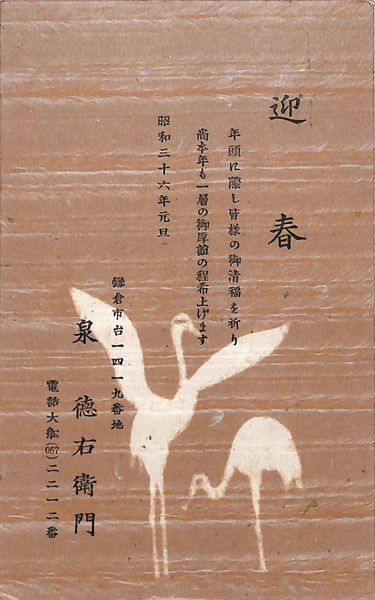 迎春
年頭に際し皆様の御清福を祈り
尚本年も一層の御厚誼の程希上げます
昭和三十六年元旦
鎌倉市台一四一九番地
泉徳右衛門
電話大船(067)二二一二番